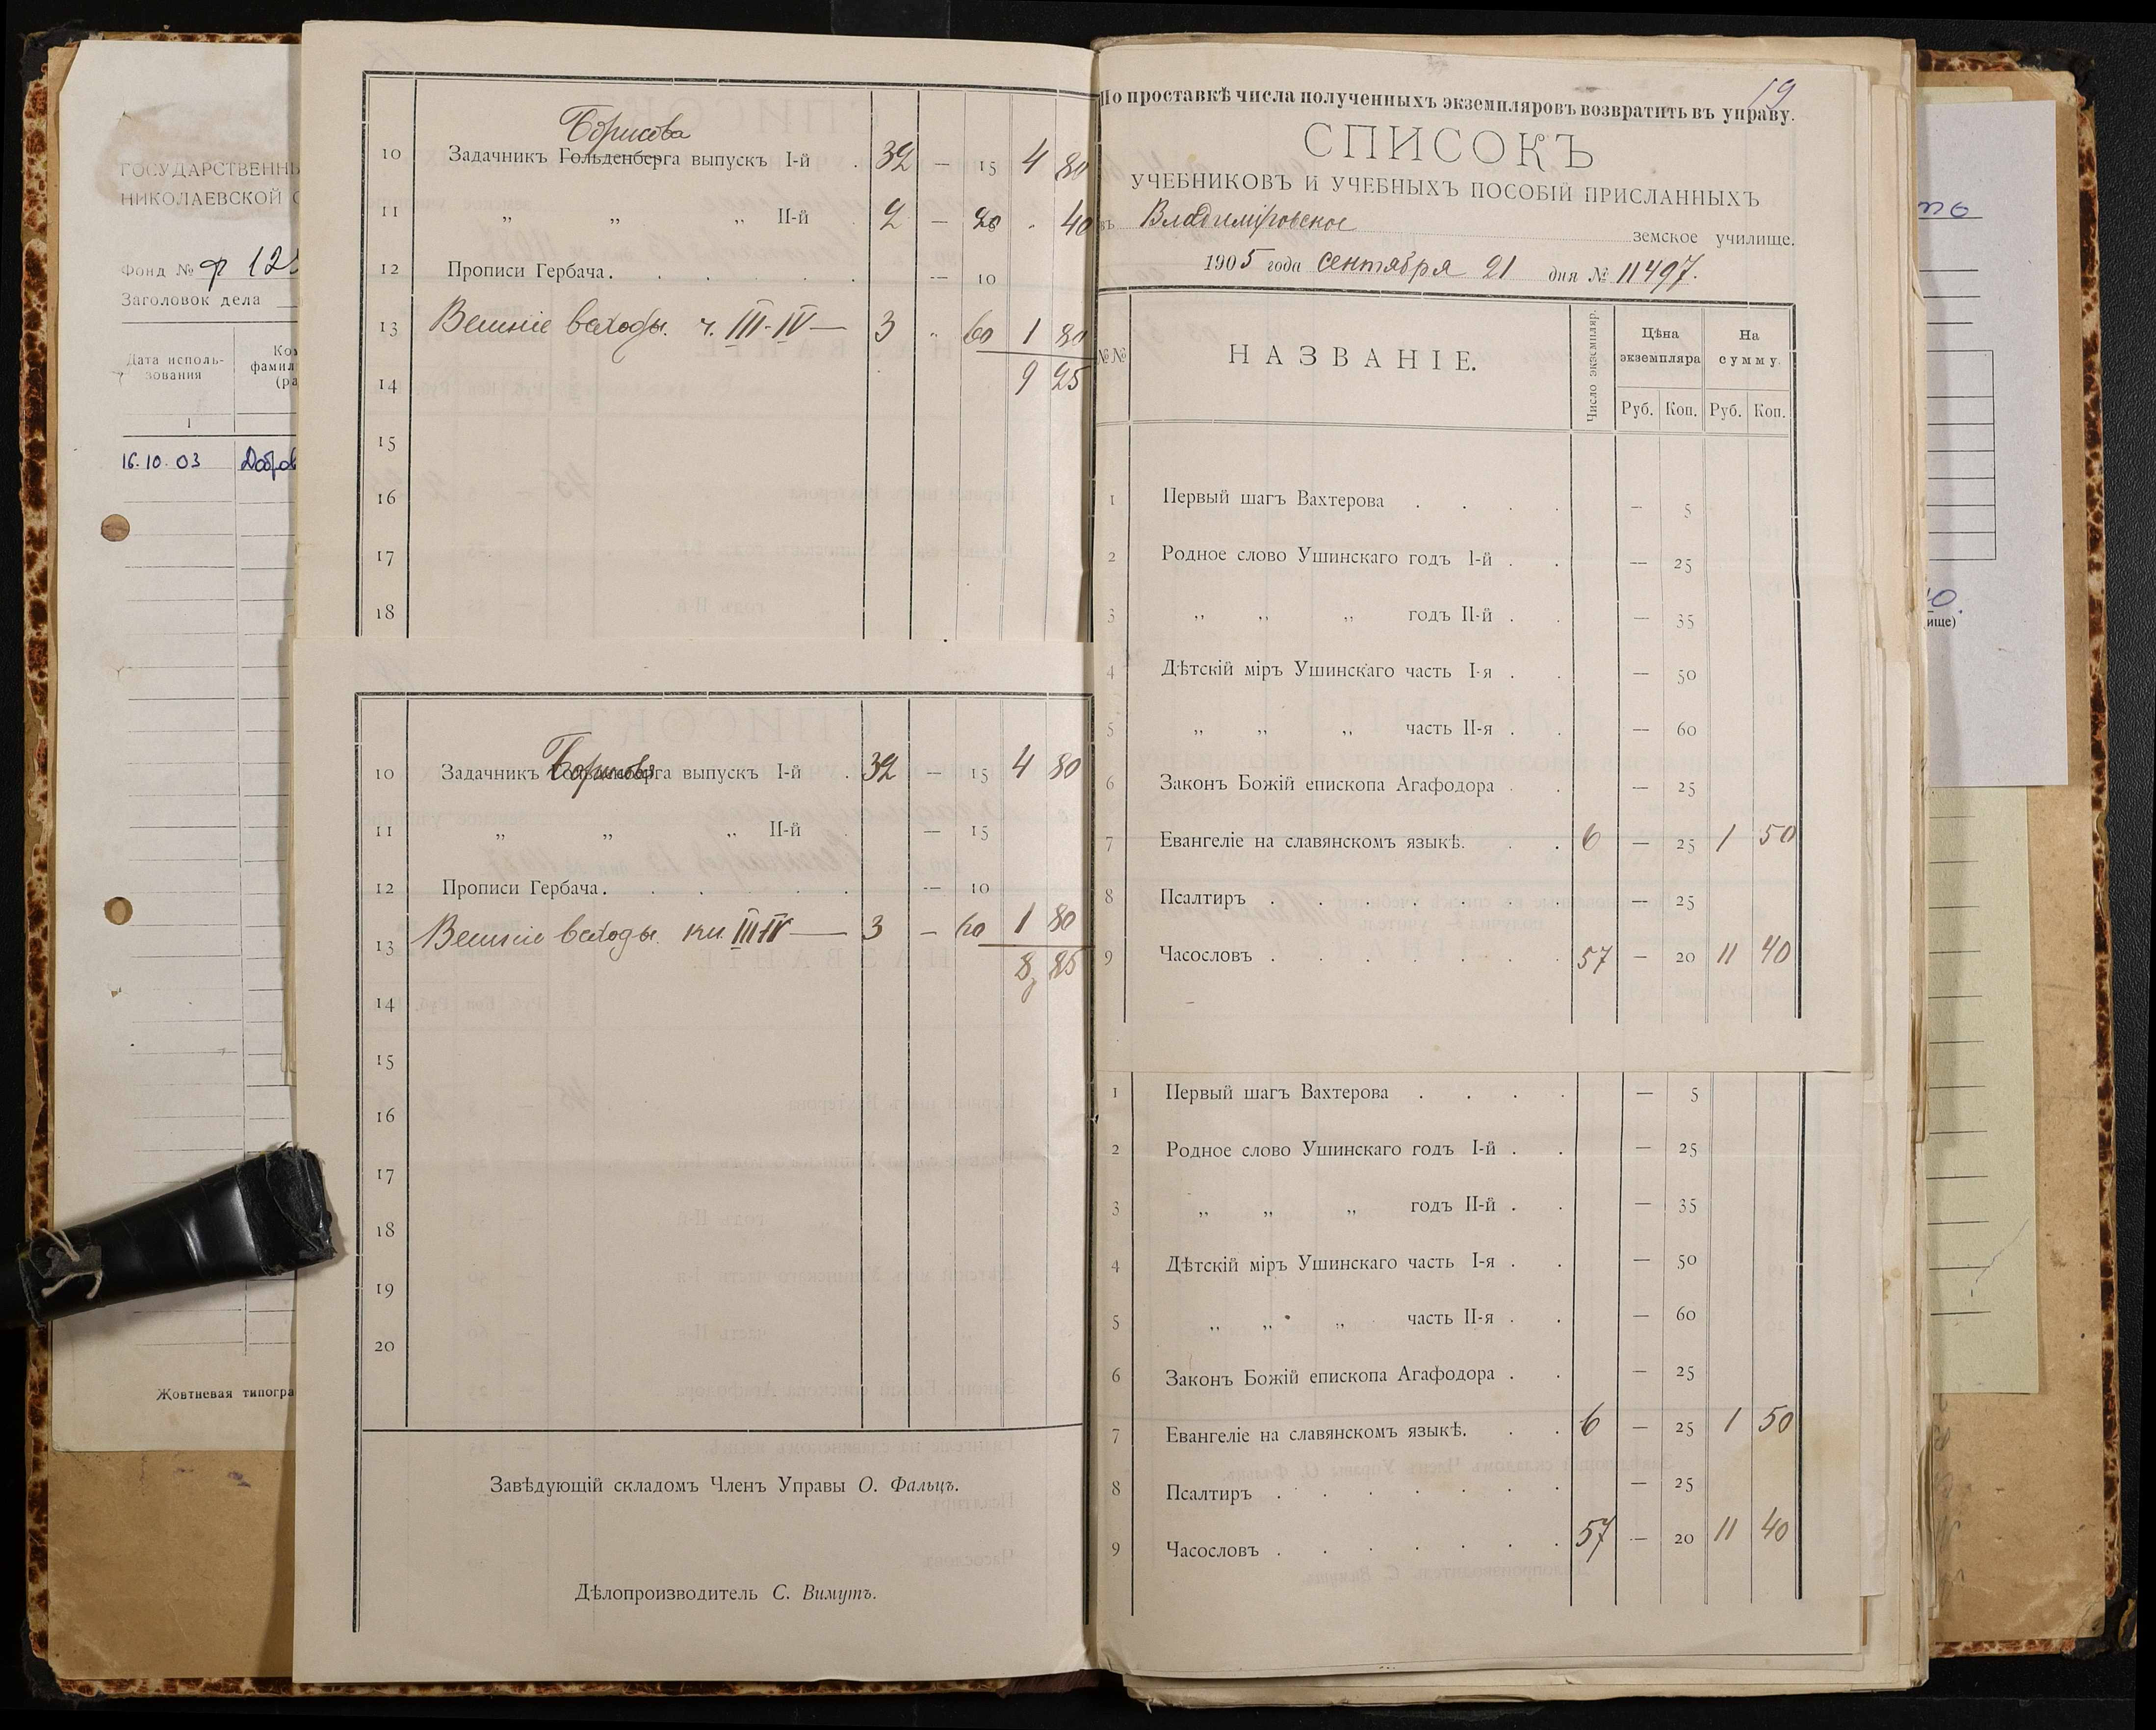 ГОСУДАРСТВЕННЫ
НИКОЛАЕВСКОЙ О
Фонд № ф 12
Заголовок дела
Дата исполь-
зования
1
16.10.03 Добров
Жовтневая типогра
Борисова
10 Задачникъ Гольденберга выпускъ I-й . 32 — 15 4 80
11 „ „ „ II-й 2 — 20 - 40
12 Прописи Гербача. . . . . . — 10
13 Вешніе всходы. ч. III-IV — 3 " 60 1 80
14 9 25
15
16
17
18
Борисова
10 Задачникъ Гольденберга выпускъ I-й . 32 — 15 4 80
11 „ „ „ II-й . — 15
12 Прописи Гербача. . . . . . — 10
13 Вешніе всходы. кн. III-IV — 3 — 60 1 80
8 85
14
15
16
17
18
19
20
Завѣдующій складомъ Членъ Управы О. Фальцъ.
Дѣлопроизводитель С. Вимутъ.
19
По проставкѣ числа полученныхъ экземпляровъ возвратить въ управу.
СПИСОКЪ
УЧЕБНИКОВЪ И УЧЕБНЫХЪ ПОСОБІЙ ПРИСЛАННЫХЪ
въ Владиміровское земское училище.
1905 года сентября 21 дня № 11497.
№№ НАЗВАНІЕ. Число экземпляр. Цѣна экземпляра На сумму.
Руб. Коп. Руб. Коп.
1 Первый шагъ Вахтерова . . . . — 5
2 Родное слово Ушинскаго годъ I-й . . — 25
3 „ „ „ годъ II-й . . — 35
4 Дѣтскій міръ Ушинскаго часть I-я . . — 50
5 „ „ „ часть II-я . . — 60
6 Законъ Божій епископа Агафодора . . — 25
7 Евангеліе на славянскомъ языкѣ. . . 6 — 25 1 50
8 Псалтиръ . . . . . . . — 25
9 Часословъ . . . . . . . 57 — 20 11 40
1 Первый шагъ Вахтерова . . . . — 5
2 Родное слово Ушинскаго годъ I-й . . — 25
3 „ „ „ годъ II-й . . — 35
4 Дѣтскій міръ Ушинскаго часть I-я . . — 50
5 „ „ „ часть II-я . . — 60
6 Законъ Божій епископа Агафодора . . — 25
7 Евангеліе на славянскомъ языкѣ. . . 6 — 25 1 50
8 Псалтиръ . . . . . . . — 25
9 Часословъ . . . . . . . 57 — 20 11 40